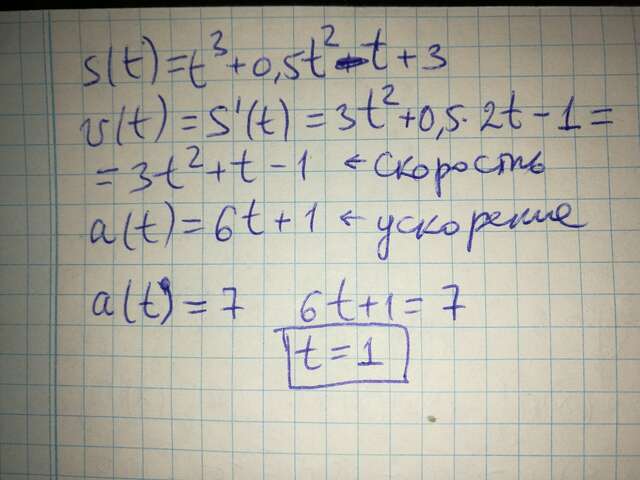 s(t)=t³+0,5t²-t+3
v(t)=S'(t)=3t²+0,5·2t-1=
=3t²+t-1 ← скорость
a(t)=6t+1 ← ускорение
a(t)=7 6t+1=7
t=1